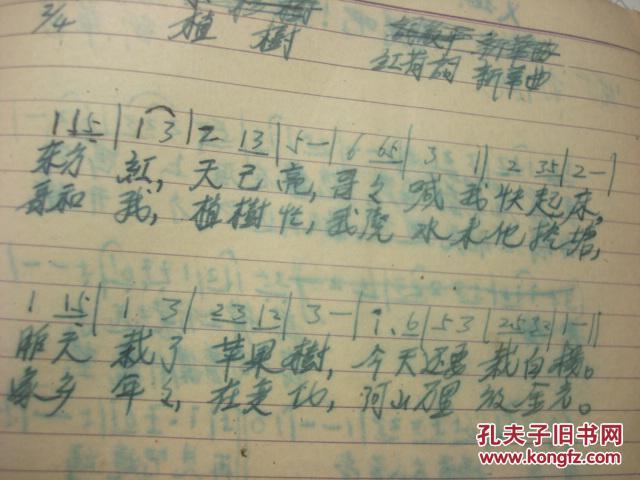 2/4 植 樹 红荷词 新军曲
1 1 15 | 1 3 | 2 13 | 5 — | 6 65 | 3 1 | 2 35 | 2 — |
东方 紅，天已亮，哥々喊我快起床，
哥和 我，植樹忙，我浇水来他挖塘，
1 15 | 1 3 | 23 12 | 3 — | i 6 | 53 | 2532 | 1 — ‖
昨天 栽了 苹果樹，今天还要栽白杨。
家乡 年々 在美化，河山万里放金光。
孔夫子旧书网
www.kongfz.com